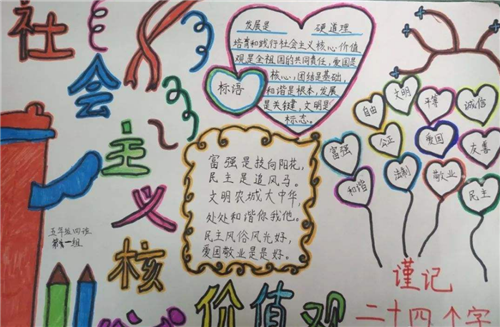 社会主义核心价值观
发展是硬道理
培育和践行社会主义核心价值
观是全祖国的共同责任,爱国是
核心,团结是基础,
和谐是根本,发展
是关键,文明是
标志。
标语
富强是扶向阳花,
民主是追风马。
文明农城大中华,
处处和谐你我他。
民主风俗风光好,
爱国敬业是最好。
自由
文明
平等
诚信
富强
公正
爱国
友善
和谐
法制
敬业
民主
五年级四班
第一组
谨记
二十四个字